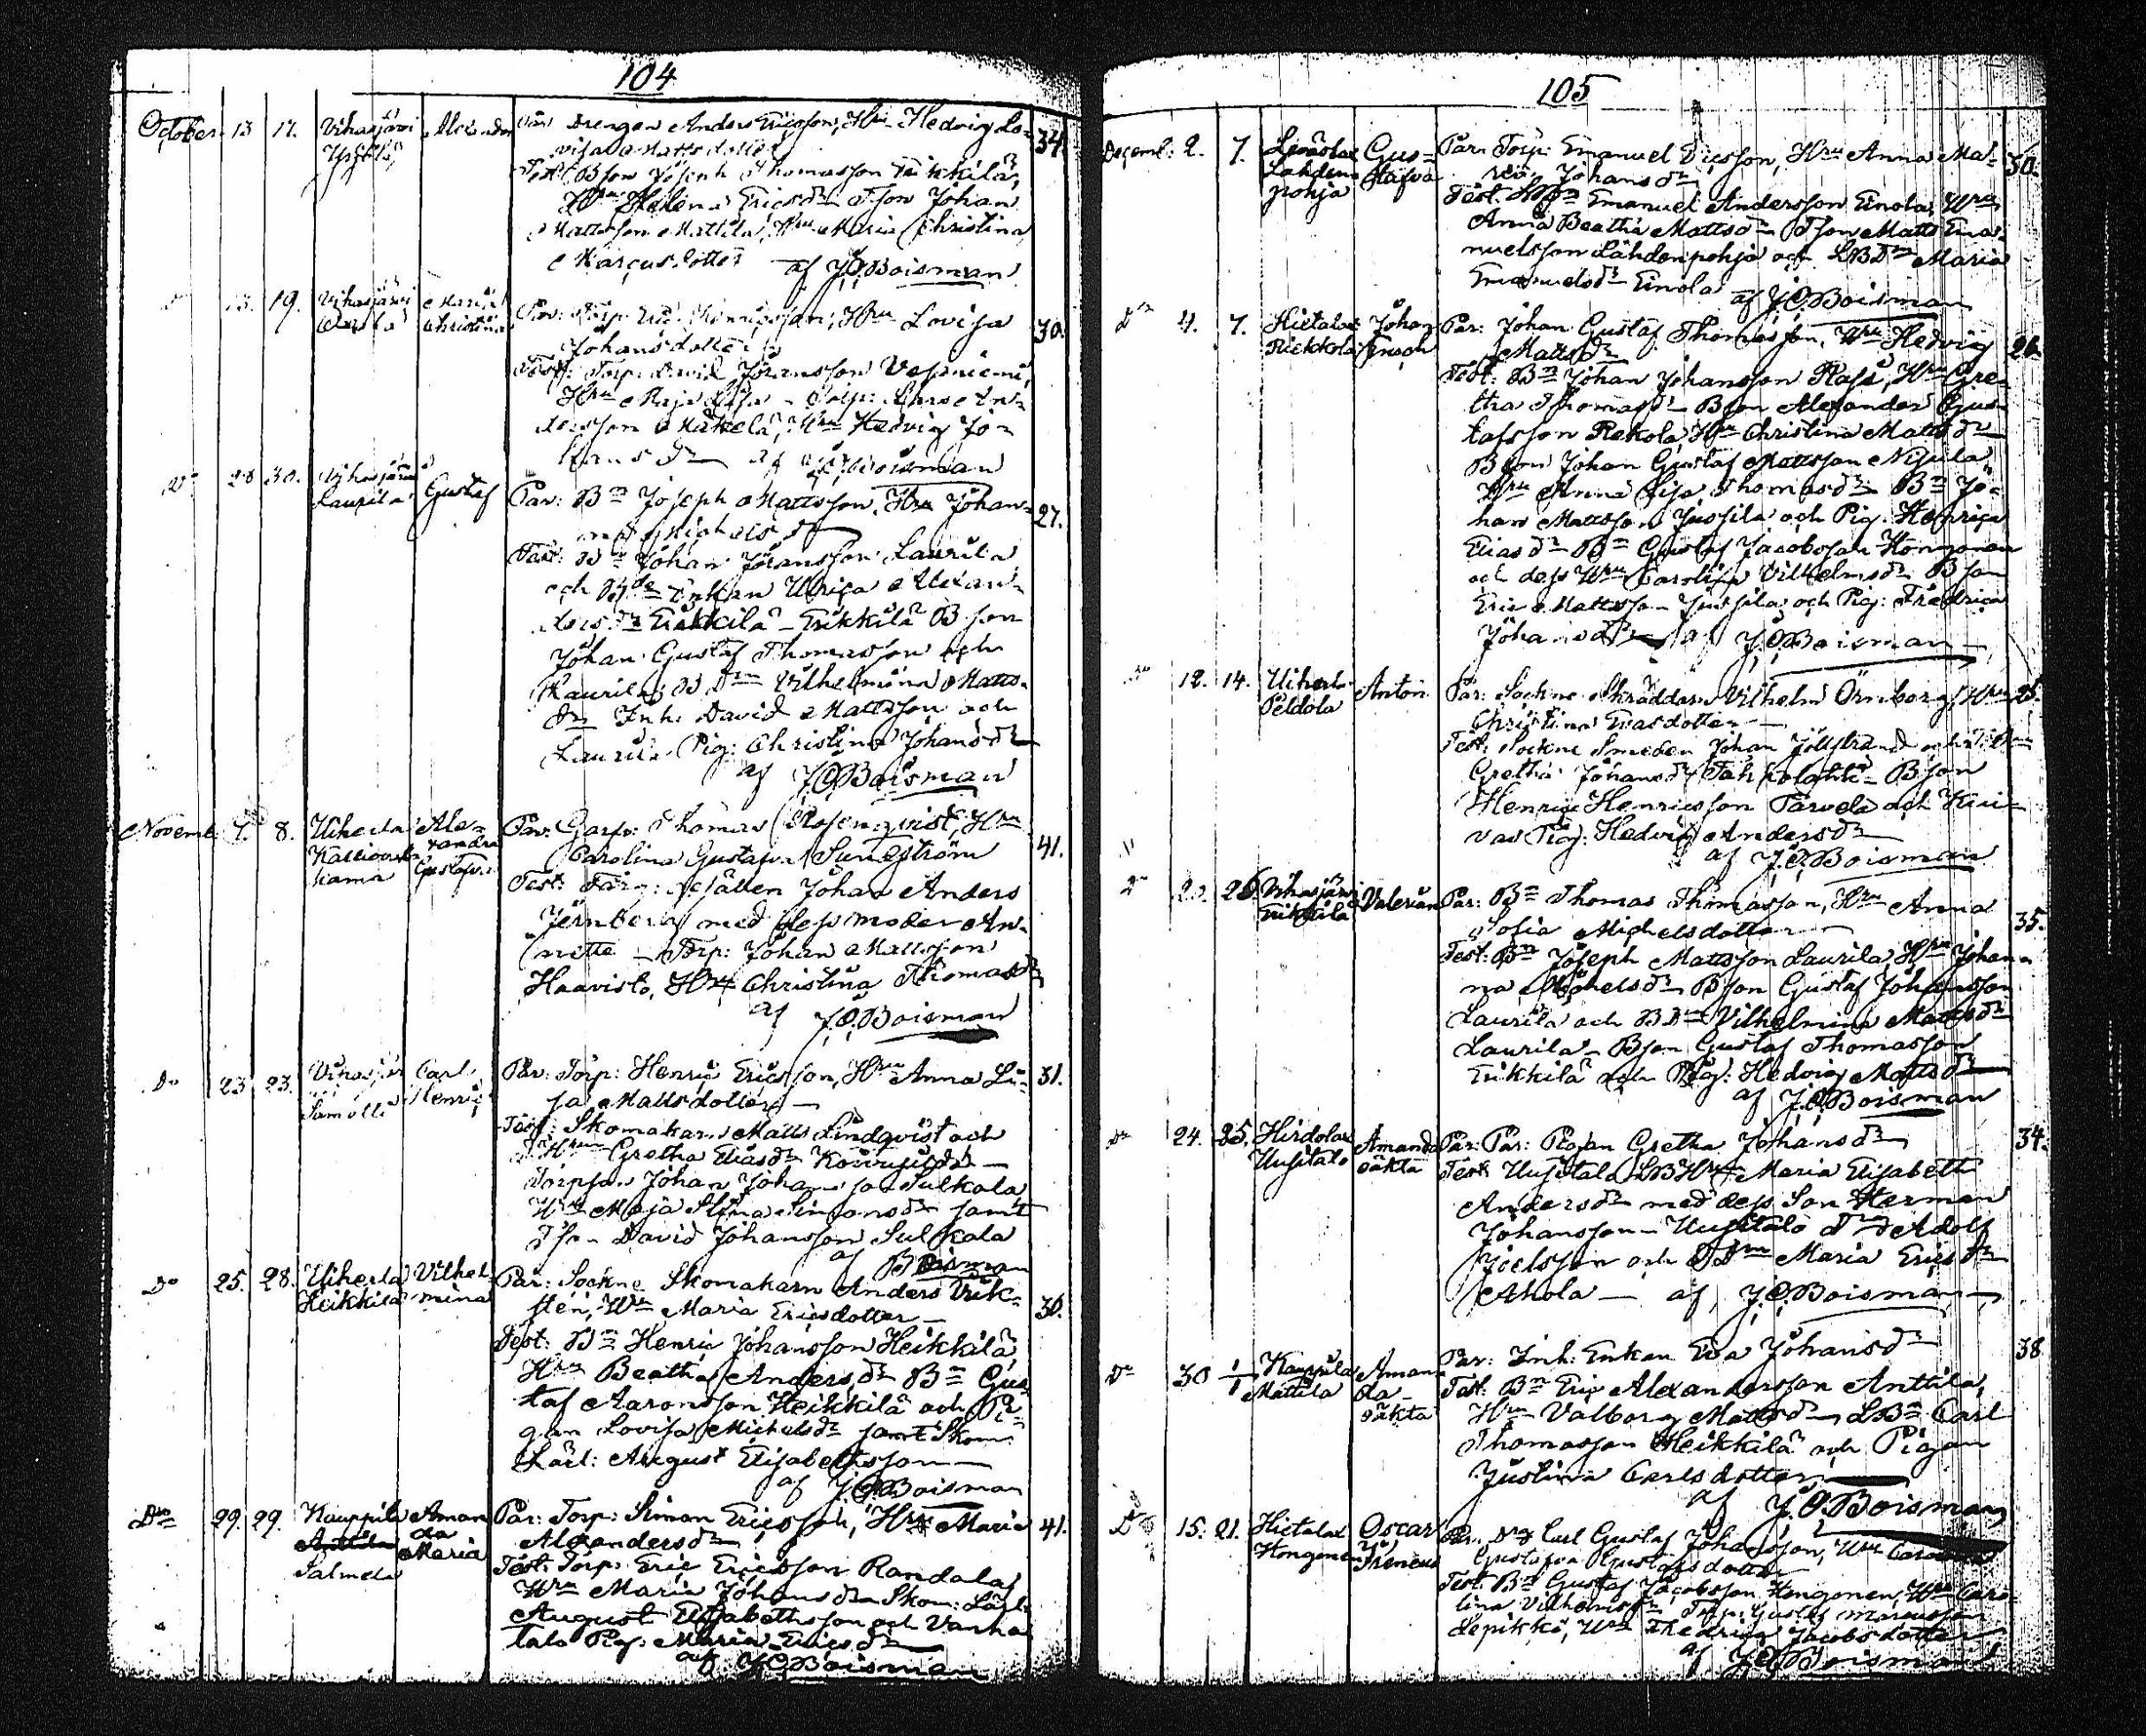 104
October 13 17. Vihasjärvi Yrjölä Alexander Par: Drengen Anders Ericsson, Hru Hedvig Lo=
visa Mattsdotter 34.
Test: Bson Joseph Thomasson Erikkilä,
Hru Helena Ericsdr Tson Johan
Mattsson Mattila, Hru Maria Christina
Marcusdotter af J.O.Boisman
Do 13. 19. Vihasjärvi Maria Christina Par: Torp: Eric Henricsson, Hru Lovisa
Johansdotter 30.
Test: Torp: David Jöransson Vesaniemi,
Hru Maja Lisa – Torp: Lars An=
dersson Mäkelä, Hru Hedvig Jo=
hansdr af J.O.Boisman
Do 28 30. Vihasjärvi Laurila Gustaf Par: Bn Joseph Mattsson, Hru Johan=
na Michelsdr 27.
Test: Bn Johan Jöransson Laurila
och Enkan Ulrica Alexan=
dersdr Erikkilä – Erikkilä Bson
Johan Gustaf Thomasson och
Laurila BDrn Vilhelmina Matts=
dr Inh. David Mattsson och
Laurila Pig: Christina Johansdr
af J.O.Boisman
Novemb: 7. 8. Uiherla Kallionkama Alexandra Gustafva Par: Garfv: Thomas Rosenqvist, Hru
Carolina Gustafva Sundström 41.
Test: Färg: Gesällen Johan Anders
Jernberg med dess moder An=
nette – Torp: Johan Mattsson
Haavisto, Hru Christina Thomasdr
af J.O.Boisman
Do 23 23. Vihasjärvi Carl Henric Par: Torp: Henric Ericsson, Hru Anna Li=
sa Mattsdotter – 31.
Test: Skomakarn Matts Lindqvist och
Hru Gretha Eliasdr –
Torpson Johan Johansson Sulkala
Hru Maja Stina Simonsdr samt
Tson David Johansson Sulkala
af Boisman
Do 25. 28. Uiherla Heikkilä Vilhelmina Par: Sockne Skomakarn Anders
Hru Maria Ericsdotter – 36.
Test: Bn Henric Johansson Heikkilä
Hru Beatha Andersdr Bn Gus=
taf Aaronsson Heikkilä och Pi=
gan Lovisa Michelsdr samt Skom:
Lärl: August Elisabethsson –
af J.O.Boisman
Do 29. 29. Kauppila Salmela Amanda Maria Par: Torp: Simon Ericsson, Hru Maria
Alexandersdr 41.
Test: Torp: Eric Ericsson Randala,
Hru Maria Johansdr Skom: Lärl:
August Elisabethsson och Varha=
talo Pig: Maria Ericsdr
af J.O.Boisman
105
Decemb: 2. 7. Lahdenpohja Gustafva Par: Torp: Emanuel Ericsson, Hru Anna Ma=
ria Johansdr 30.
Test: Emanuel Andersson Einola, Hru
Anna Beatha Mattsdr Tson Matts Ema=
nuelsson Lahdenpohja och LBDrn Maria
Emanuelsdr Einola af J.O.Boisman
Do 4. 7. Hietalax Riekkola Johan Par: Johan Gustaf Thomasson, Hru Hedvig
Mattsdr 26.
Test: Bn Johan Johansson Rasi, Hru Gre=
tha Thomasdr – Bson Alexander Gus=
tafsson Rekola, Hru Christina Mattsdr
Bson Johan Gustaf Mattsson Nisula
Hru Anna Lisa Thomasdr – Bn Jo=
han Mattsson Jussila och Pig: Henrica
Eliasdr – Bn Gustaf Jacobsson Hongonen
och dess Hru Carolina Vilhelmsdr Bson
Eric Mattsson Jussila och Pig: Fredrica
Johansdr – af J.O.Boisman
Do 12. 14. Uiherla Peldola Anton Par: Sockne Skräddarn Vilhelm Örnborg, Hru
Christina Eriasdotter –
Test: Sockne Smeden Johan Jöllstrand och
Gretha Johansdr – Bson
Henric Henricsson Tarvela och
Pig: Hedvig Andersdr
af J.O.Boisman
Do 20. 26. Vihasjärvi Erikkilä Valerian Par: Bn Thomas Thomasson, Hru Anna
Sofia Michelsdotter – 35.
Test: Bn Joseph Mattsson Laurila, Hru Johan=
na Michelsdr Bson Gustaf Johansson
Laurila och BDrn Vilhelmina Mattsdr
Laurila – Bson Gustaf Thomasson
Erikkilä och Pig: Hedvig Mattsdr
af J.O.Boisman
Do 24. 25. Hirdola Uusitalo Amanda oäkta Par: Par: Pigan Gretha Johansdr 34.
Test: Uusitalo LBHru Maria Elisabeth
Andersdr med dess Son Herman
Johansson – Uusitalo Adolf
Joelsson och Maria Ericsdr
Ahola – af J.O.Boisman
Do 30 1/1 Kauppila Mattila Amanda oäkta Par: Inh: Enkan Eva Johansdr 38
Test: Bn Eric Alexandersson Anttila,
Hru Valborg Mattsdr, LBn Carl
Thomasson Heikkilä och Pigan
Justina Carlsdotter
af J.O.Boisman
Do 15. 21. Hietalax Hongonen Oscar Ireneus Par: Carl Gustaf Johansson, Hru Carolina
Gustafva Gustafsdotter
Test: Bn Gustaf Jacobsson Hongonen, Hru Caro=
lina Vilhelmsdr Torp: Gustaf Marcusson
Lepikkö, Hru Fredrica Jacobsdotter
af J.O.Boisman